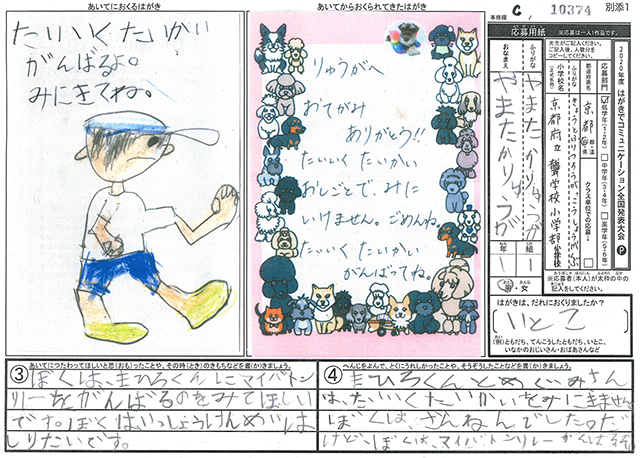 あいてにおくるはがき
たいいくたいかい
がんばるよ。
みにきてね。
あいてからおくられてきたはがき
りゅうがへ
おてがみ
ありがとう!!
たいいくたいかい
おしごとで、みに
いけません。ごめんね
たいいくたいかい
がんばってね。
事務欄
C, 10374
別添1
応募用紙
※応募は一人1作品です。
2020年度 はがきでコミュニケーション全国発表大会
応募部門
低学年(1・2年)
中学年(3・4年)
高学年(5・6年)
都道府県名
京都
クラス単位での応募
小学校名
(正式名称)
京都府立聾学校小学部
ふりがな
おなまえ
やまだかりゅうが
年
組
男・女
はがきは、だれにおくりましたか?
いとこ
(例)ともだち、てんこうしたともだち、いとこ、
いなかのおじいさん・おばあさんなど
③
あいてにつたわってほしいと思(おも)ったことや、その時(とき)のきもちなどを書(か)きましょう。
ぼくは、まひろくんにマイバトン
リレーをがんばるのをみてほしい
です。ぼくはいっしょうけんめいは
しりたいです。
④
へんじをよんで、とくにうれしかったことや、そうぞうしたことなどを書(か)きましょう。
まひろくんとめぐみさん
は、たいいくたいかいをみにきません。
ぼくは、ざんねんでした。
けど、ぼくは、マイバトンリレーがんばるぞ。